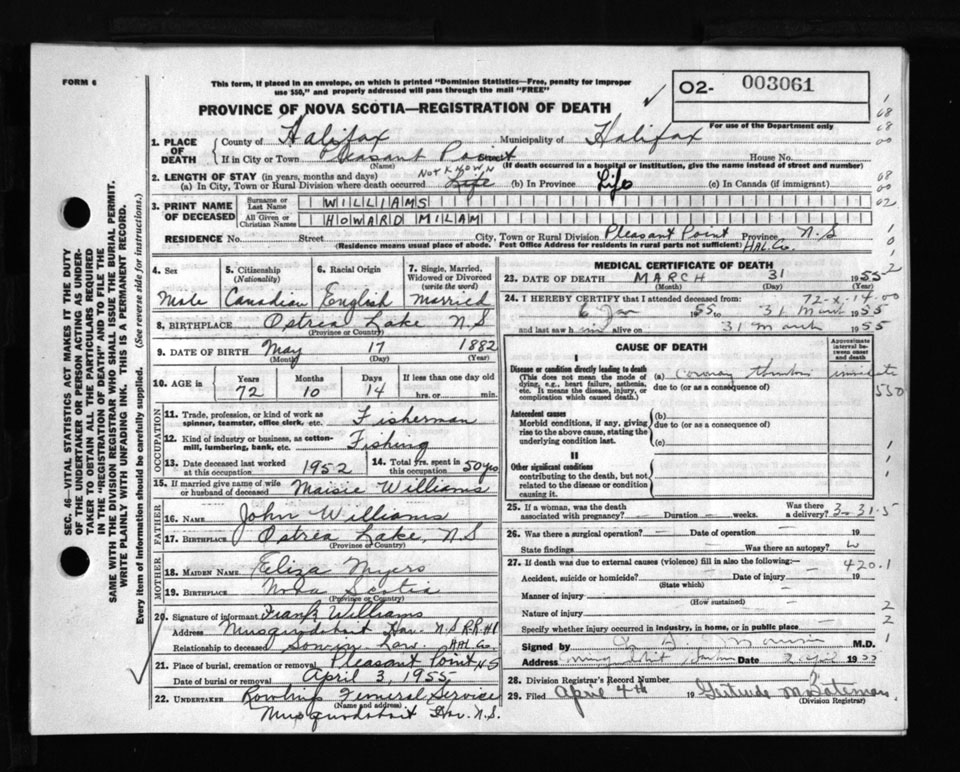 FORM 6
This form, if placed in an envelope, on which is printed "Dominion Statistics—Free, penalty for improper
use $50," and properly addressed will pass through the mail "FREE"
PROVINCE OF NOVA SCOTIA—REGISTRATION OF DEATH
O2- 003061
For use of the Department only
1. PLACE OF DEATH
County of Halifax Municipality of Halifax
If in City or Town Pleasant Point House No.
(Name) (If death occurred in a hospital or institution, give the name instead of street and number)
2. LENGTH OF STAY (in years, months and days) Not Known
(a) In City, Town or Rural Division where death occurred Life (b) In Province Life (c) In Canada (if immigrant)
3. PRINT NAME OF DECEASED
Surname or Last Name WILLIAMS
All Given or Christian Names HOWARD MILAM
RESIDENCE No. Street City, Town or Rural Division Pleasant Point Province N.S
(Residence means usual place of abode. Post Office Address for residents in rural parts not sufficient) HAL. Co.
4. Sex Male
5. Citizenship (Nationality) Canadian
6. Racial Origin English
7. Single, Married, Widowed or Divorced (write the word) Married
8. BIRTHPLACE Ostrea Lake N.S
(Province or Country)
9. DATE OF BIRTH May 17 1882
(Month) (Day) (Year)
10. AGE in Years 72 Months 10 Days 14 If less than one day
hrs. or min.
OCCUPATION
11. Trade, profession, or kind of work as
spinner, teamster, office clerk, etc. Fisherman
12. Kind of industry or business, as cotton-
mill, lumbering, bank, etc. Fishing
13. Date deceased last worked
at this occupation 1952
14. Total yrs. spent in
this occupation 50 yrs
15. If married give name of wife
or husband of deceased Maisie Williams
FATHER
16. NAME John Williams
17. BIRTHPLACE Ostrea Lake, N.S
(Province or Country)
MOTHER
18. MAIDEN NAME Eliza Myers
19. BIRTHPLACE Nova Scotia
(Province or Country)
20. Signature of informant Frank Williams
Address Musquodoboit Har. N.S R.R #1
Relationship to deceased Son in Law. Hal. Co.
21. Place of burial, cremation or removal Pleasant Point N.S
Date of burial or removal April 3, 1955
22. UNDERTAKER Rowlings Funeral Service
(Name and address)
Musquodoboit Har. N.S.
MEDICAL CERTIFICATE OF DEATH
23. DATE OF DEATH MARCH 31 1955
(Month) (Day)
72-X-14-00
24. I HEREBY CERTIFY that I attended deceased from:
6 Jan 1955 to 31 March 1955
and last saw him alive on 31 March 1955
CAUSE OF DEATH
Approximate interval between onset and death
I
Disease or condition directly leading to death
(This does not mean the mode of
dying, e.g., heart failure, asthenia,
etc. It means the disease, injury, or
complication which caused death.)
(a) Coronary
due to (or as a consequence of)
Antecedent causes
Morbid conditions, if any, giving
rise to the above cause, stating the
underlying condition last.
(b)
due to (or as a consequence of)
(c)
II
Other significant conditions
contributing to the death, but not
related to the disease or condition
causing it.
25. If a woman, was the death
associated with pregnancy? – Duration – weeks. Was there
a delivery? 3-31-5
26. Was there a surgical operation? – Date of operation – 19
State findings Was there an autopsy?
27. If death was due to external causes (violence) fill in also the following:— 420.1
Accident, suicide or homicide? Date of injury 19
(State which)
Manner of injury
(How sustained)
Nature of injury
Specify whether injury occurred in industry, in home, or in public place
Signed by M.D.
Address Date 2 April 1955
28. Division Registrar's Record Number
29. Filed April 4th 19 Gertrude M. Bateman
(Division Registrar)
SEC. 46—VITAL STATISTICS ACT MAKES IT THE DUTY
OF THE UNDERTAKER OR PERSON ACTING AS UNDER-
TAKER TO OBTAIN ALL THE PARTICULARS REQUIRED
IN THE "REGISTRATION OF DEATH" AND TO FILE THE
SAME WITH THE DIVISION REGISTRAR WHO SHALL ISSUE THE BURIAL PERMIT.
WRITE PLAINLY WITH UNFADING INK. THIS IS A PERMANENT RECORD.
Every item of information should be carefully supplied. (See reverse side for instructions.)